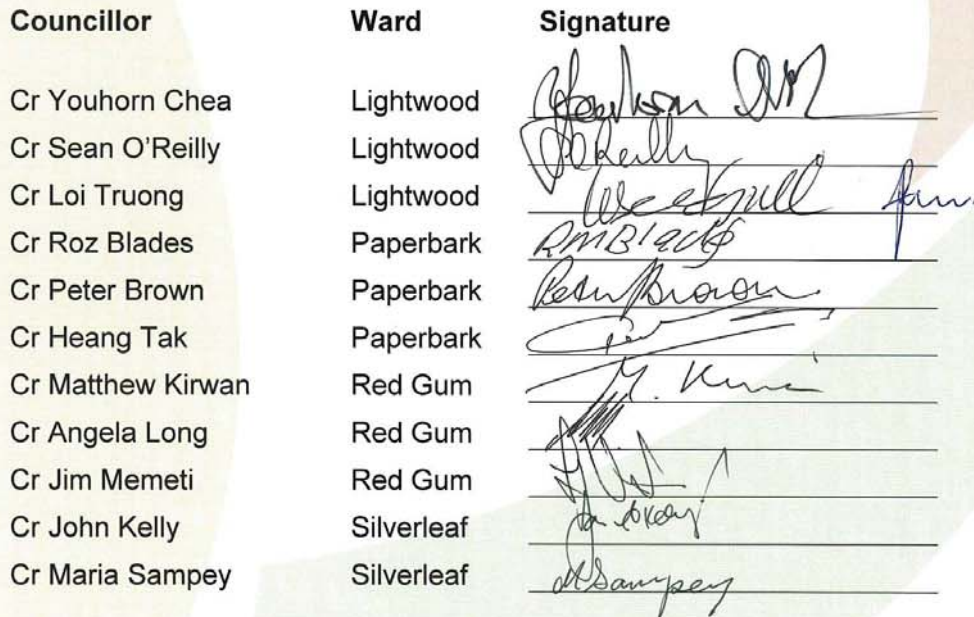 Councillor Ward Signature
Cr Youhorn Chea Lightwood
Cr Sean O'Reilly Lightwood O'Reilly
Cr Loi Truong Lightwood
Cr Roz Blades Paperbark RMBlades
Cr Peter Brown Paperbark Peter Brown
Cr Heang Tak Paperbark
Cr Matthew Kirwan Red Gum M.
Cr Angela Long Red Gum
Cr Jim Memeti Red Gum
Cr John Kelly Silverleaf
Cr Maria Sampey Silverleaf M Sampey